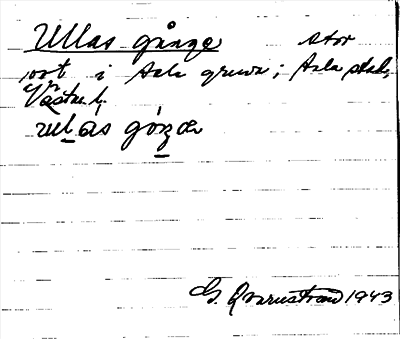 Ullas gånge stor
ort i Sala gruva; Sala stad,
Västm. l.
G. Qvarnström 1943